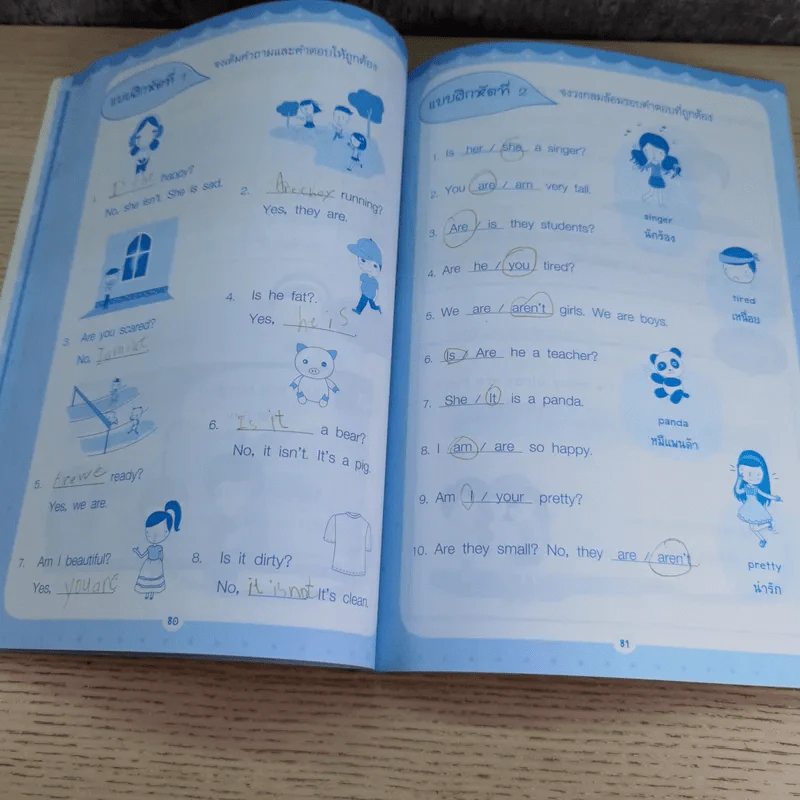 แบบฝึกหัดที่ 1
จงเติมคำถามและคำตอบให้ถูกต้อง
1. happy?
No, she isn't. She is sad.
2. Arethey running?
Yes, they are.
3. Are you scared?
No,
4. Is he fat?.
Yes, he is
5. Arewe ready?
Yes, we are.
6. Is it a bear?
No, it isn't. It's a pig.
7. Am I beautiful?
Yes, youare
8. Is it dirty?
No, it isnot It's clean.
80
แบบฝึกหัดที่ 2
จงวงกลมล้อมรอบคำตอบที่ถูกต้อง
1. Is her / she a singer?
2. You are / am very tall.
3. Are / is they students?
4. Are he / you tired?
5. We are / aren't girls. We are boys.
6. Is / Are he a teacher?
7. She / It is a panda.
8. I am / are so happy.
9. Am I / your pretty?
10. Are they small? No, they are / aren't
singer
นักร้อง
tired
เหนื่อย
panda
หมีแพนด้า
pretty
น่ารัก
81